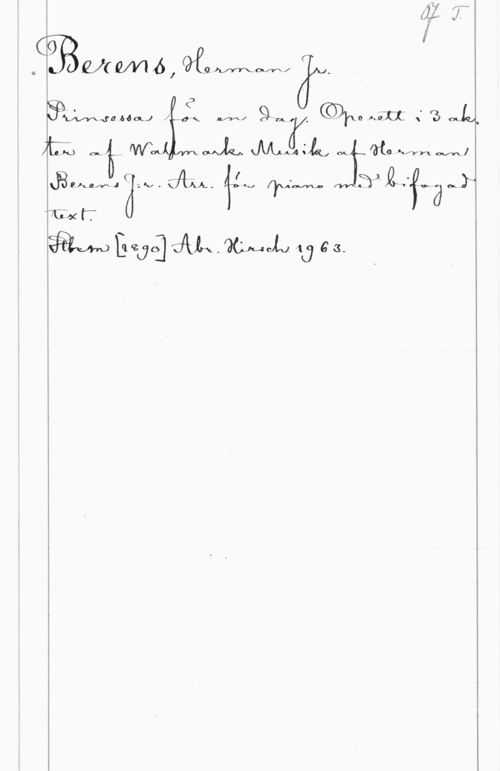 Of T.
Berens, Herman Jr.
Prinsessa för en dag. Operett i 3 ak,
ter af Wallmark. Musik af Herman
Berens Jr. Arr. för piano med bifogad
text.
Sthm [1890] Abr. Hirsch 1963.